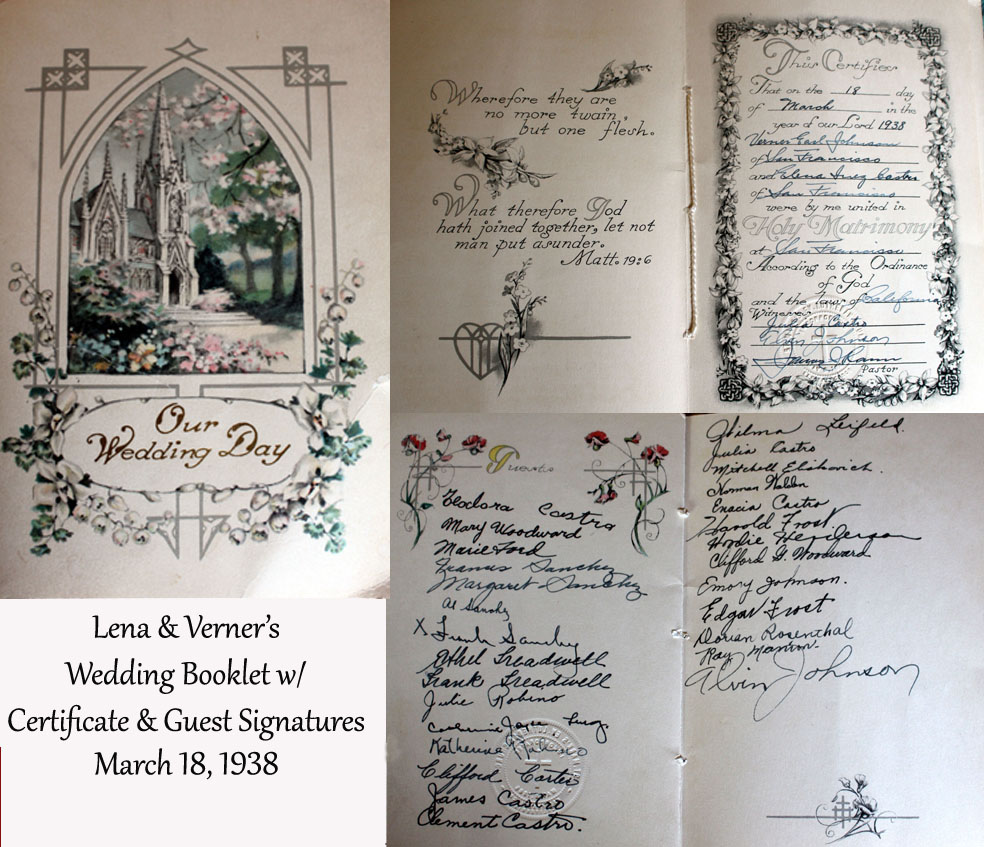 Our
Wedding Day
Lena & Verner's
Wedding Booklet w/
Certificate & Guest Signatures
March 18, 1938
Wherefore they are
no more twain,
but one flesh.
What therefore God
hath joined together, let not
man put asunder.
Matt. 19:6
This Certifies
That on the 18 day
of March in the
year of our Lord 1938
Verner Earl Johnson
of San Francisco
and Elena Inez Castro
of San Francisco
were by me united in
Holy Matrimony
at San Francisco
According to the Ordinance
of God
and the laws of California
Witnesses
Julia Castro
Alvin Johnson
Pastor
Guests
Teodora Castro
Mary Woodward
Marie Ford
Francis Sanchez
Margaret Sanchez
Al Sanchez
X Frank Sanchez
Ethel Treadwell
Frank Treadwell
Julie Robino
Katherine
Clifford Carter
James Castro
Clement Castro.
Julia Castro
Mitchell
Norman
Enacia Castro
Harold Frost
Henderson
Clifford G. Woodward
Emory Johnson.
Edgar Frost
Dorian Rosenthal
Ray
Alvin Johnson